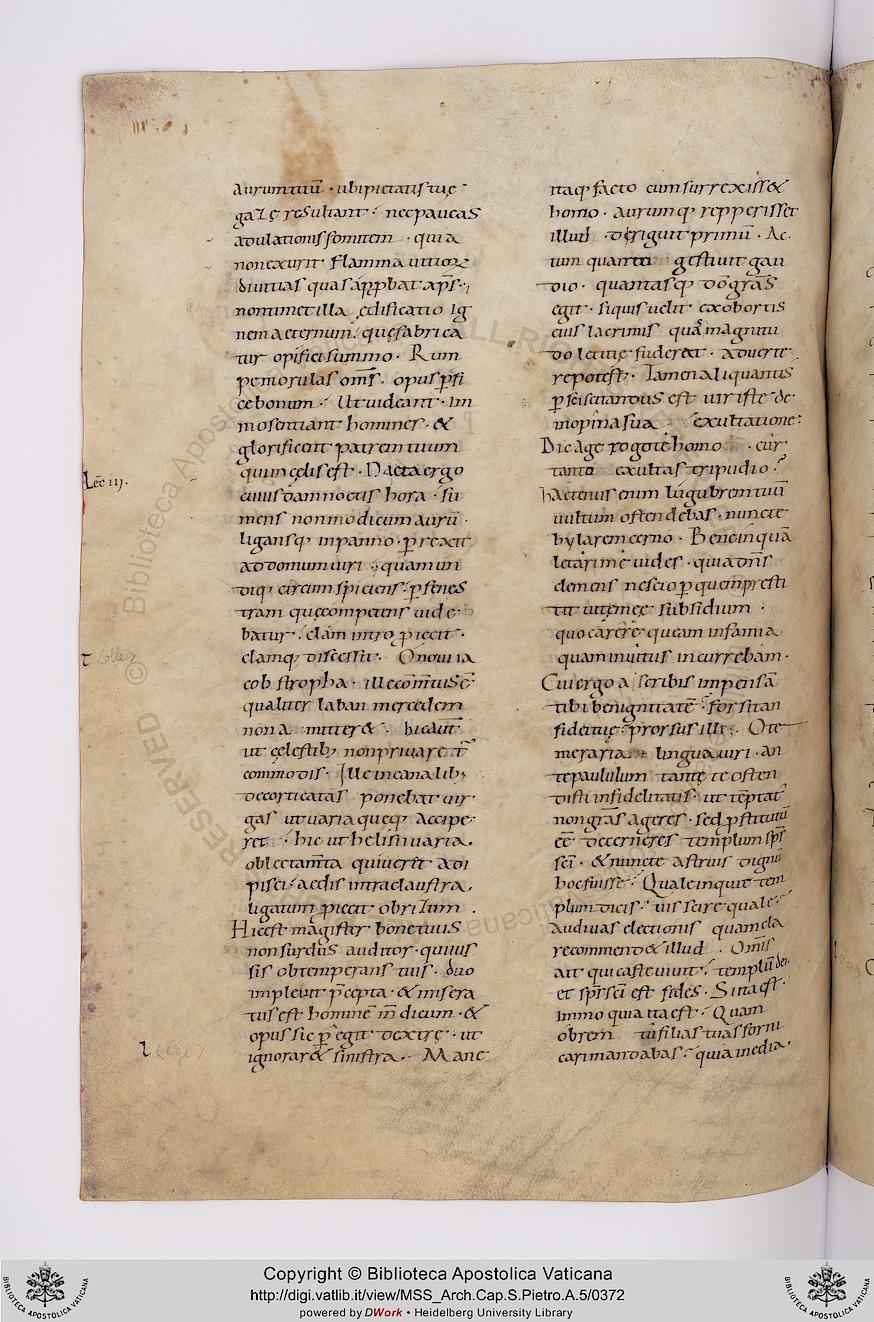 aurum tuũ · ubi pietatis tuę
gazę resultant · nec paucas
adulationis fomitem · quia
non exurit flamma ultione
divitias quas ap͛pbat ap̃s ·
non timet illa ędificatio ig
nem aeternum · quę fabrica
tur opifici summo · Rum
pe morulas om̃s · opus p̲fi
ce bonum · Ut videant im
mo sentiant homines · &
glorificent patrem tuum
qui in cęlis est · Nacta ergo
cuiusdam noctis hora · su
mens non modicum aurũ ·
ligansq; in panno · p̲rexit
ad domum viri · quam un
diq; circumspiciens · p̲ fenes
tram quę competens vide
batur · clam intro p̲iecit ·
clamq; discessit · O novi ia
cob stropha · ille com̃tus ẽ
qualiter laban mercedem
non amitter& · hic aut̃
ut cęlestib; non privaret̃
commodis · Ille in canalib;
decorticatas ponebat vir
gas ut varia queq; accipe
ret · hic ut helisii varia
oblectam̃ta quiverit adi
pisci · aedis intra claustra
ligatum p̲iecit obrizum ·
Hic est magister bone tuus
non surdus auditor · qui ius
sis obtemperans tuis · duo
implevit p̃cepta · & misera
tus est hominẽ m̃dicum · &
opus sic p̲egit dextrę · ut
ignorar& sinistra · Mane
Lec̃ iii ·
itaq; facto cum surrexiss&
homo · aurumq; repperisset
illud · deriguit primũ · Ac
tum gestivit gau
dio · quantasq; dõ grãs
egit · siquis velit ex obortis
eius lacrimis quã magnitu
do letitię fuderat · advertere
potest · Tamen aliquantis
p̲ sciscitandus est vir iste de
inopina sua exultatione
Dic age rogo te homo · cur
tanto exultas tripudio ?
hactenus enim lugubrem tuũ
vultum ostendebas · nunc te
hylarem cerno · Bene inquã
letari me vides · quia dñs
clemens nescio p̲ quem presti
tit vitę meę subsidium ·
quo carere queam infamia
quam invitus incurrebam ·
Cui ergo ascribis impensã
tibi benignitatẽ · forsitan
fidei tuę · prorsus illi · O te
meraria lingua viri · an
te paululum tantę te osten
disti infidelitatis · ut tẽptat
non grãs ageres · sed p̲stitutũ
eẽ decerneres templum sp̃s
sc̃i · & nunc te astruis dignũ
hoc fuisse · Quale inquit tem
plum dicis · vis scire quale ·
Audivas electionis quam cla
re commendet illud · Om̃is
ait qui caste vivit · templũ dei
et sp̃s sc̃i est sedes · Si ita est ·
immo quia ita est · Quam
obrem tu filias tuas forni
cari mandabas · quia inedia
Copyright © Biblioteca Apostolica Vaticana
http://digi.vatlib.it/view/MSS_Arch.Cap.S.Pietro.A.5/0372
powered by DWork • Heidelberg University Library